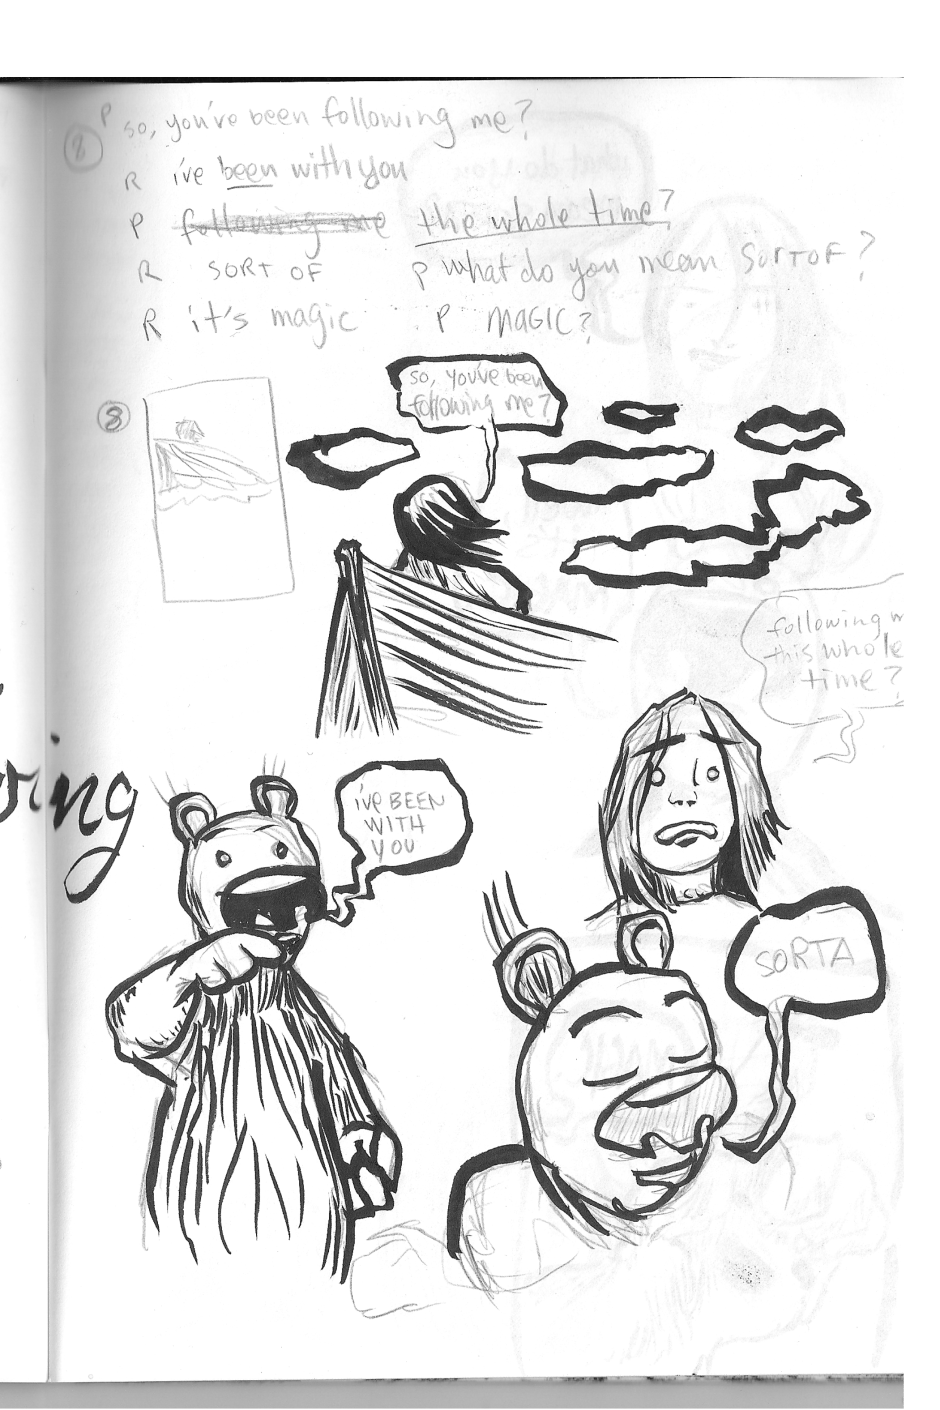 8 P so, you've been following me?
R i've been with you
P following me the whole time?
R SORT OF P what do you mean SORTOF?
R it's magic P MAGIC?
8
so, you've been
following me?
following m
this whole
time?
ring
i've BEEN
WITH
YOU
SORTA